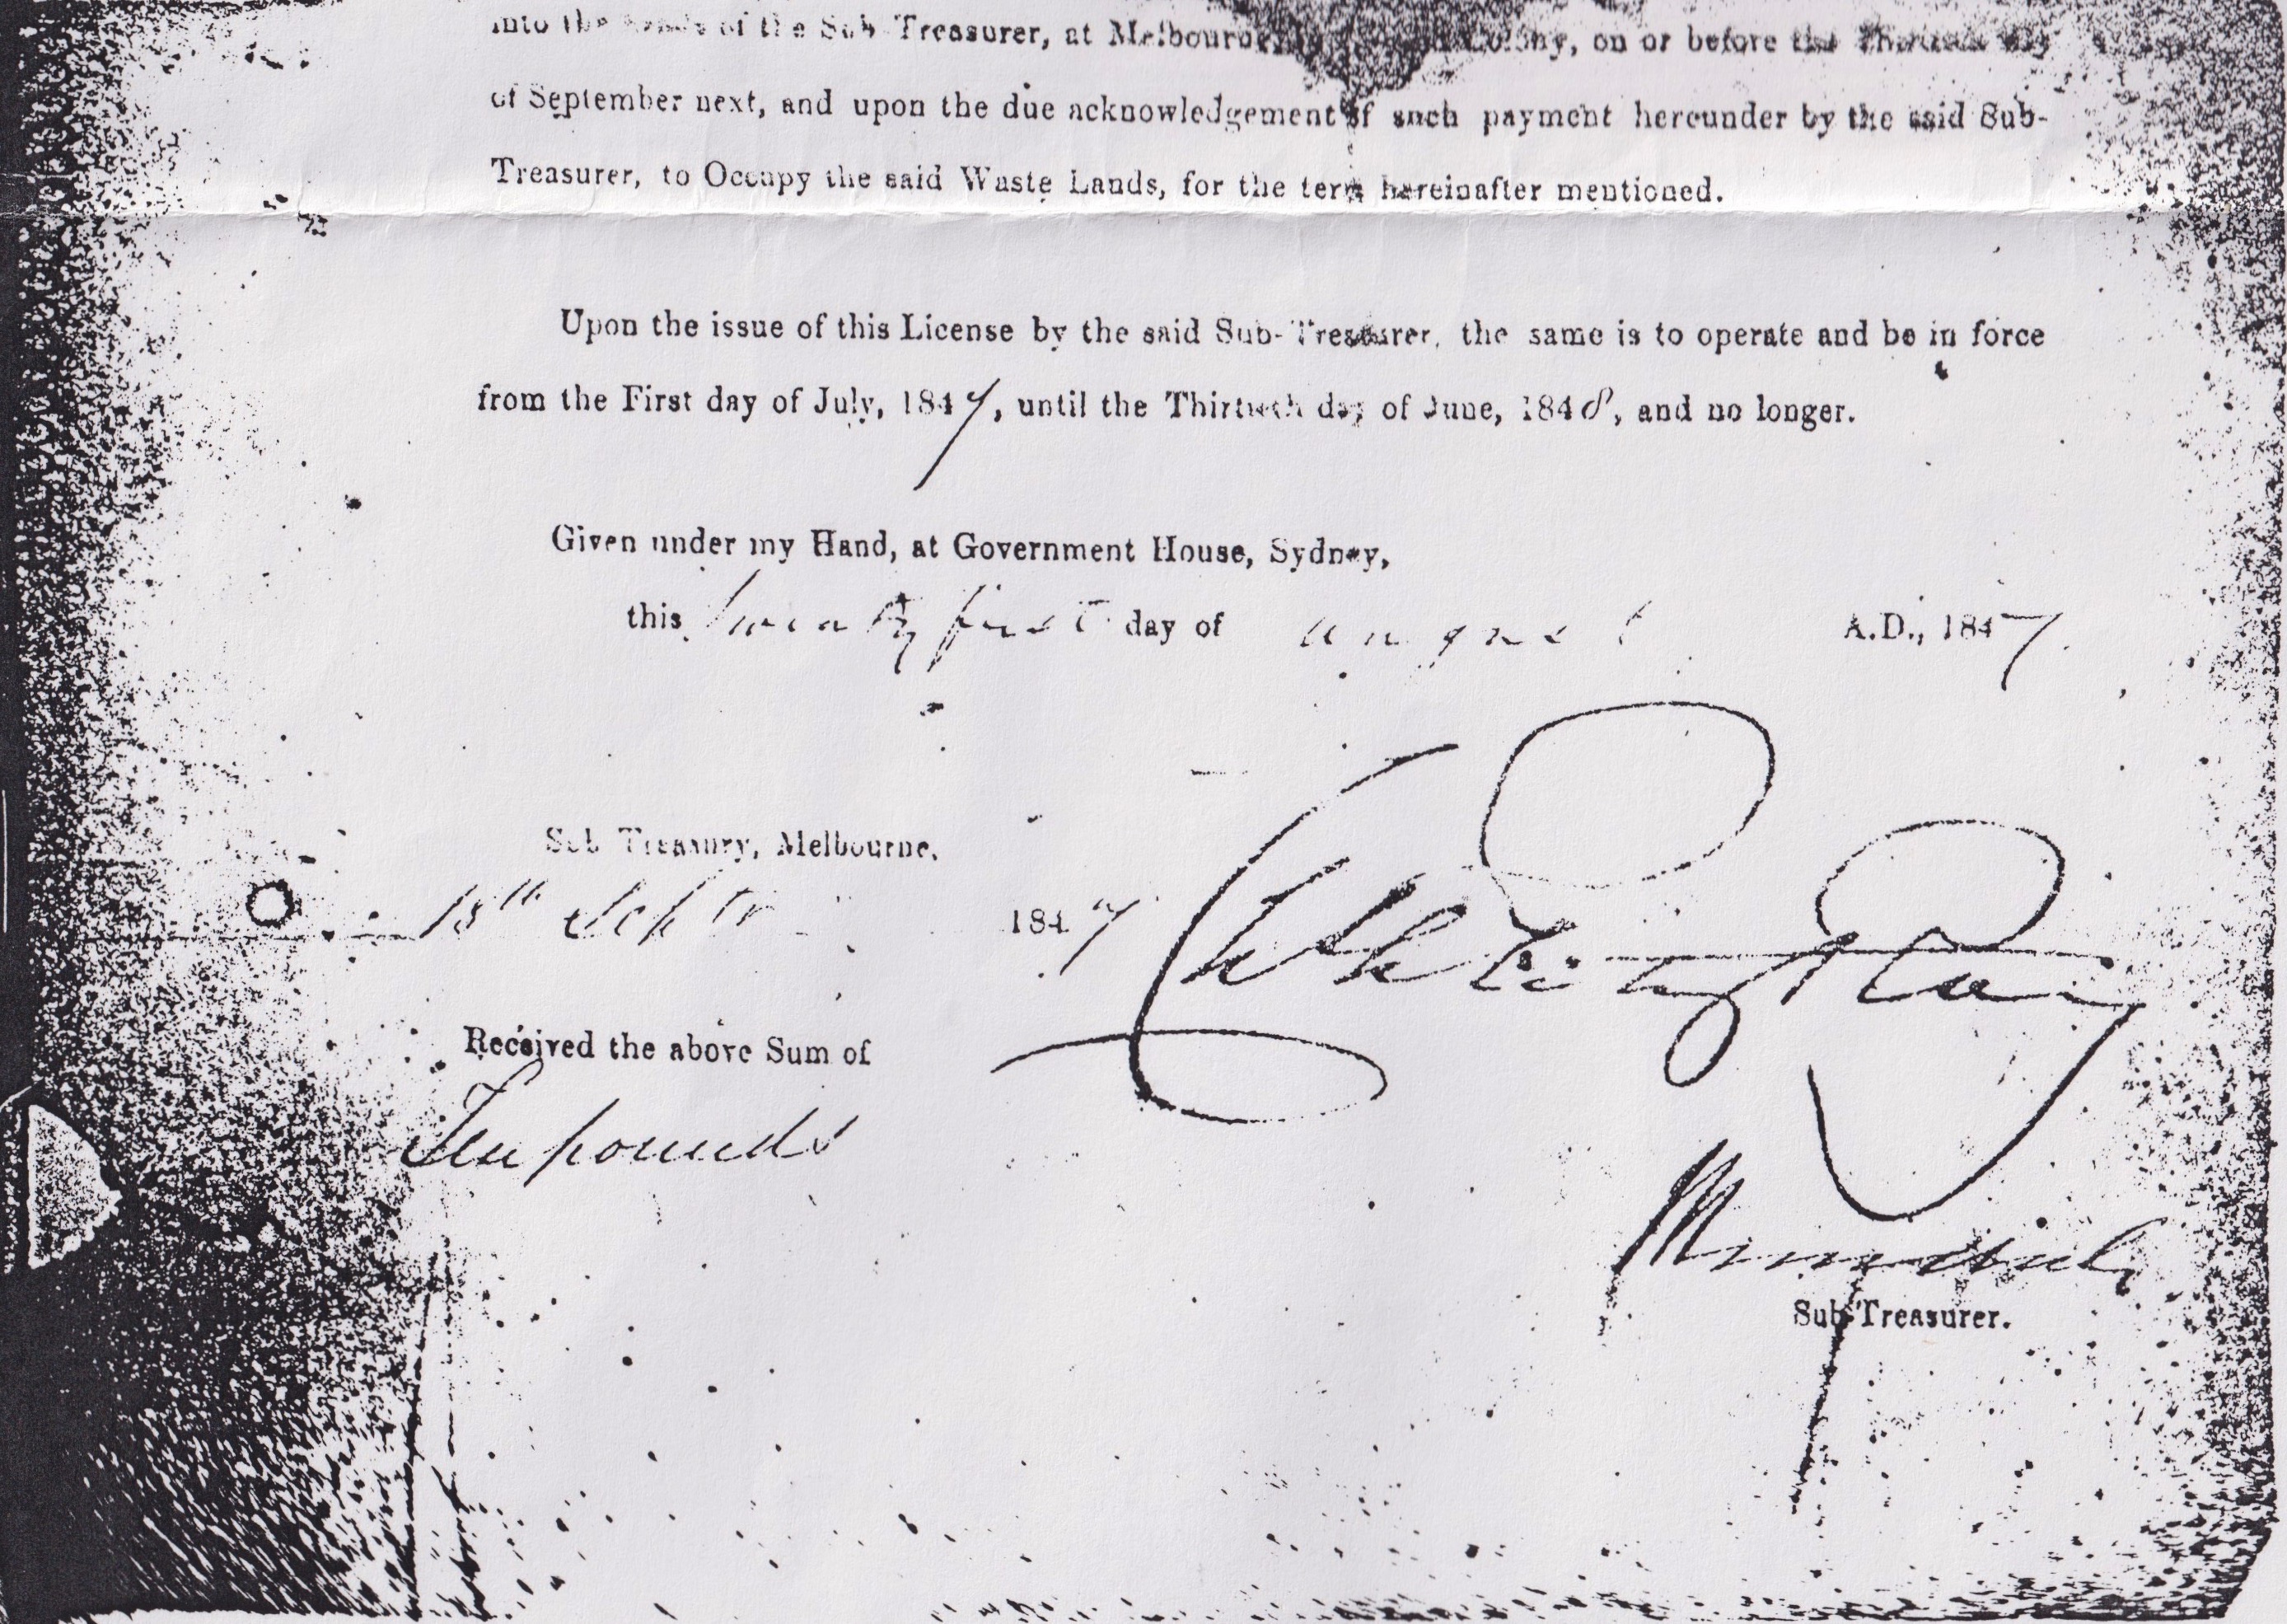 into the hands of the Sub-Treasurer, at Melbourne, Colony, on or before the Thirtieth day
of September next, and upon the due acknowledgement of such payment hereunder by the said Sub-
Treasurer, to Occupy the said Waste Lands, for the term hereinafter mentioned.
Upon the issue of this License by the said Sub-Treasurer, the same is to operate and be in force
from the First day of July, 1847, until the Thirtieth day of June, 1848, and no longer.
Given under my Hand, at Government House, Sydney,
this twenty first day of august A.D., 1847.
Sub Treasury, Melbourne,
15th Septr 1847
Received the above Sum of
Ten pounds
Sub-Treasurer.